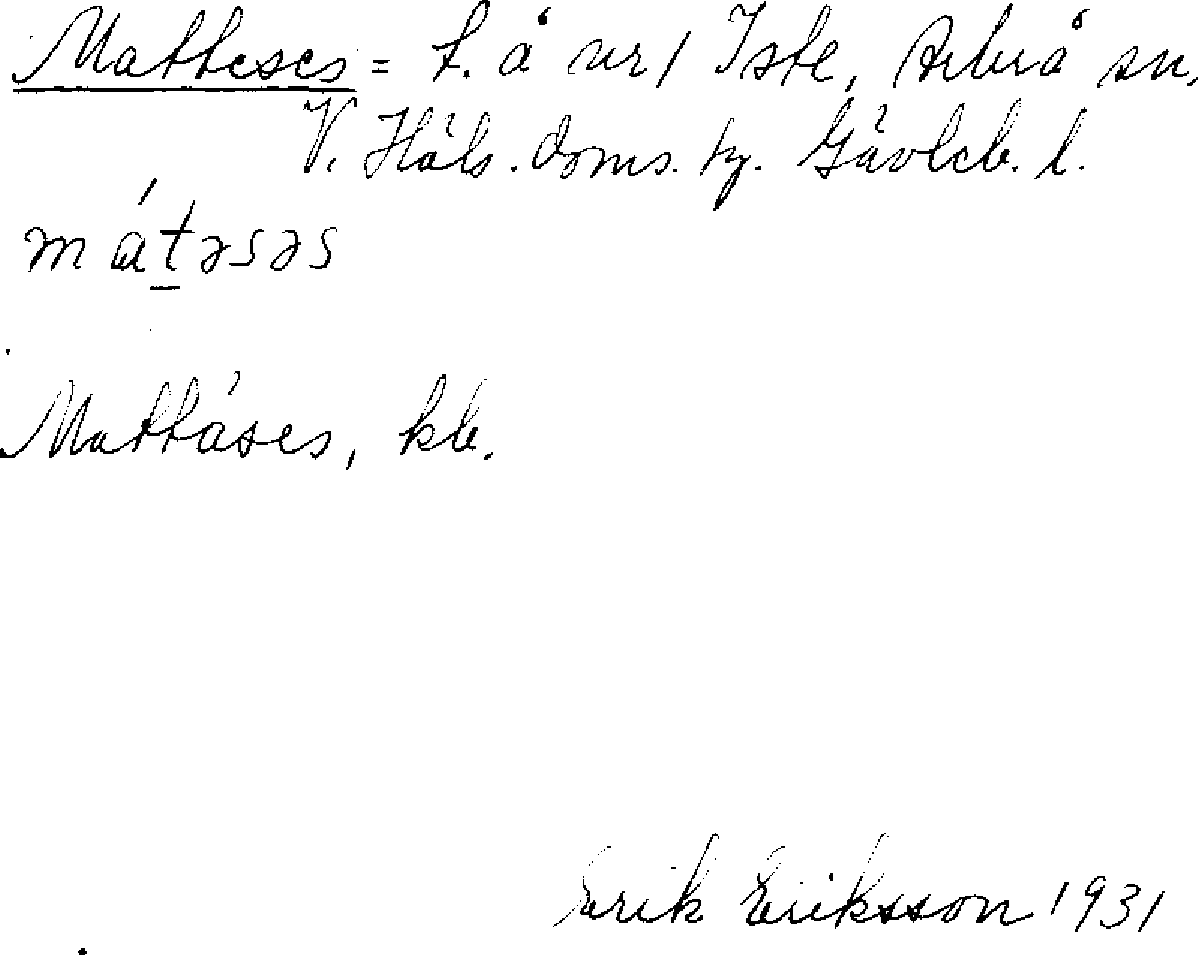 Matteses = t. å nr 1 Iste, Arbrå sn,
V. Häls. doms. hg. Gävleb. l.
mátəsəs
Mattáses, kb.
Erik Eriksson 1931